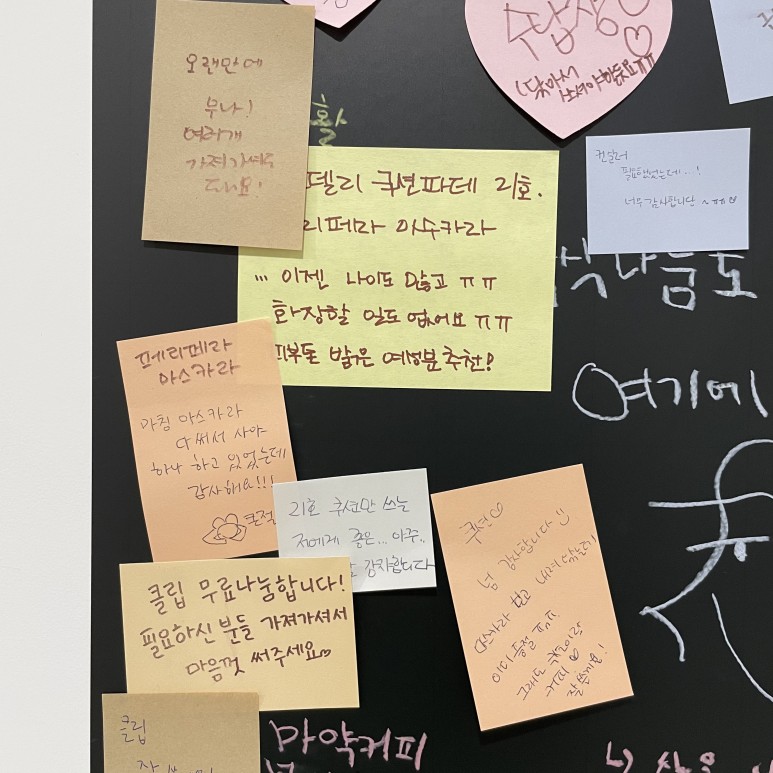 오랜만에
무나!
여러개
가져가셔도
돼요!
수납장
(닦아서
활
델리 쿠션파데 21호.
리페라 마스카라
... 이젠 나이도 많고 ㅠㅠ
화장할 일도 없어요 ㅠㅠ
피부톤 밝은 여성분 추천!
컨실러
필요했었는데..!
너무 감사합니다
나눔도
여기에
페리페라
마스카라
마침 마스카라
다 써서 사야
하나 하고 있었는데
감사해요!!!
21호 쿠션만 쓰는
저에게 좋은... 아주..
감사합니다
쿠션♡
넘 감사합니다 :)
마스카라 보고 내려왔는데
이미 품절 ㅠㅠ
그래도 쿠션이랑
커피 ♡
잘 쓸게요!
클립 무료나눔합니다!
필요하신 분들 가져가셔서
마음껏 써주세요♡
클립
마약커피